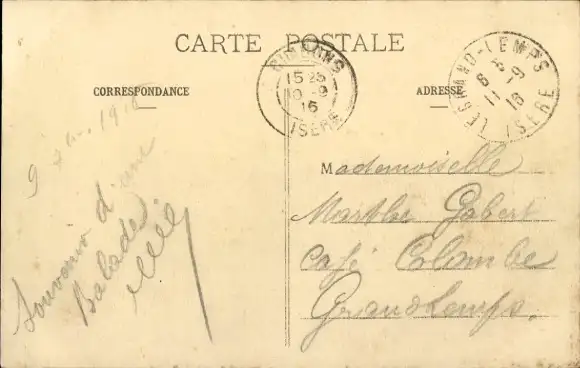 CARTE POSTALE
CORRESPONDANCE
ADRESSE
15 25
10 -9
16
ISÈRE
LE GRAND-LEMPS
6 35
11 -9
16
ISÈRE
9 7bre 1916
Souvenir d'une
Balade
Mademoiselle
Marthe Gabert
Café Colombe
Grand Lemps.